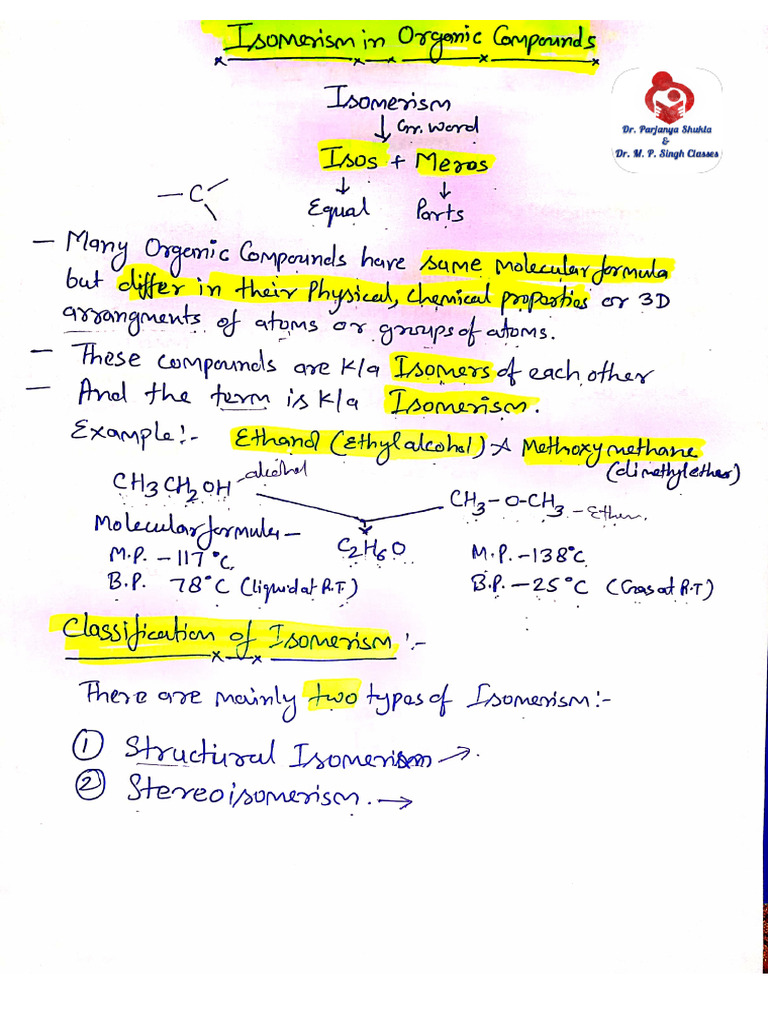 Isomerism in Organic Compounds
Dr. Parjanya Shukla
&
Dr. M. P. Singh Classes
Isomerism
↓ Gr. word
Isos + Meros
↓ ↓
Equal Parts
— C
— Many Organic Compounds have same molecular formula
but differ in their Physical, Chemical properties or 3D
arrangments of atoms or groups of atoms.
— These compounds are K/a Isomers of each other
— And the term is K/a Isomerism.
Example:- Ethanol (Ethyl alcohol) & Methoxy methane
(dimethylether)
CH3CH2OH – alcohol
CH3–O–CH3 – Ether
Molecular formula –
C2H6O
M.P. –117°C
M.P. –138°C
B.P. 78°C (liquid at R.T)
B.P. –25°C (Gas at R.T)
Classification of Isomerism :-
There are mainly two types of Isomerism:-
① Structural Isomerism →.
② Stereoisomerism. →